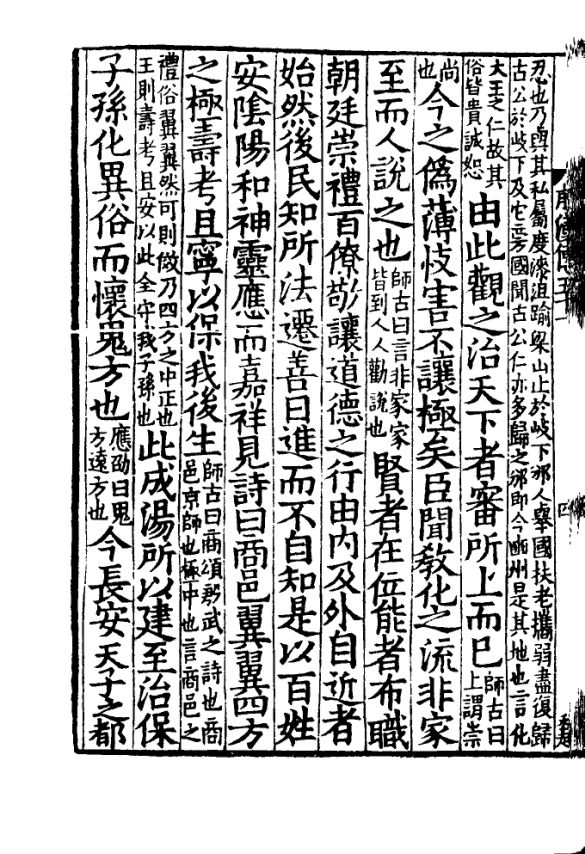 忍也乃與其私屬度漆沮踰梁山止於岐下邠人舉國扶老攜弱盡復歸
古公於岐下及它旁國聞古公仁亦多歸之邠即今豳州是其地也言化
大王之仁故其俗皆貴誠恕由此觀之治天下者審所上而已師古曰上謂崇
尚也今之僞薄忮害不讓極矣臣聞教化之流非家
至而人說之也師古曰言非家家皆到人人勸說也賢者在位能者布職
朝廷崇禮百僚敬讓道德之行由內及外自近者
始然後民知所法遷善日進而不自知是以百姓
安陰陽和神靈應而嘉祥見詩曰商邑翼翼四方
之極壽考且寧以保我後生師古曰商頌殷武之詩也商邑京師也極中也言商邑之
禮俗翼翼然可則倣乃四方之中正也王則壽考且安以此全守我子孫也此成湯所以建至治保
子孫化異俗而懷鬼方也應劭曰鬼方遠方也今長安天子之都